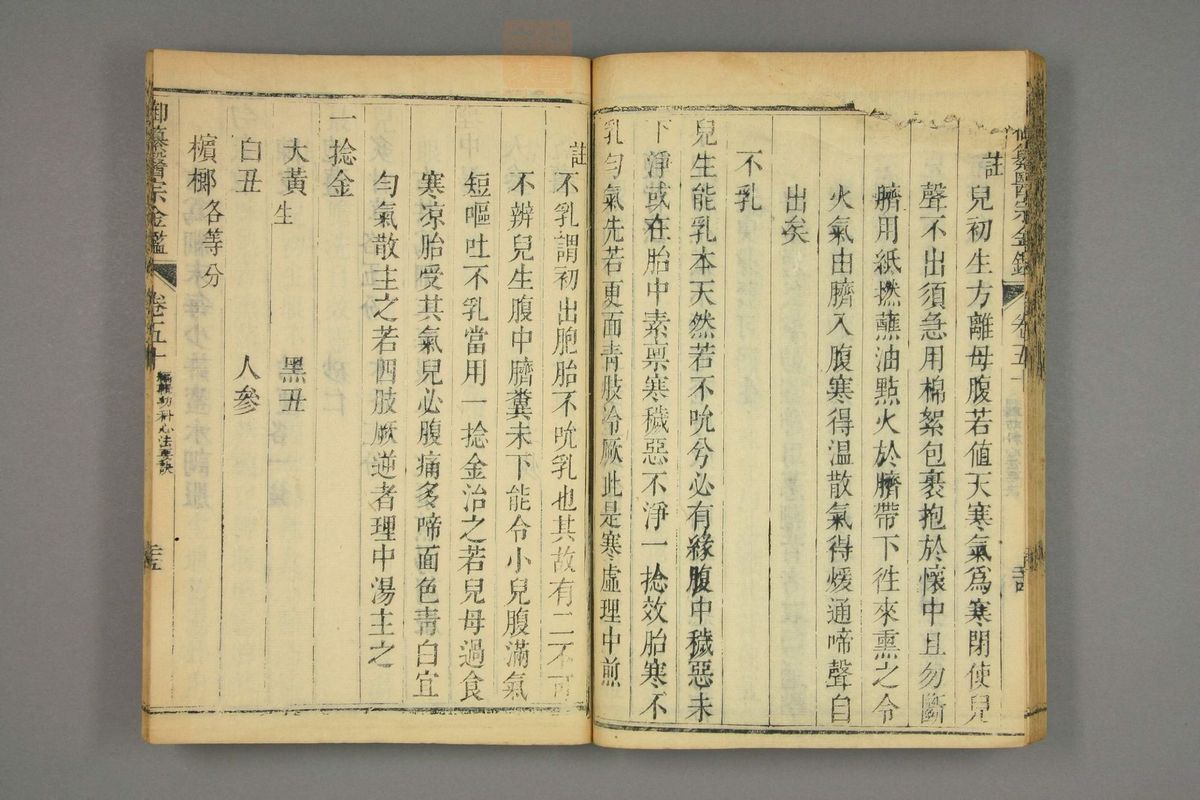 註兒初生方離母腹若值天寒氣爲寒閉使兒
聲不出須急用棉絮包裹抱於懷中且勿斷
臍用紙撚蘸油點火於臍帶下徃來熏之令
火氣由臍入腹寒得温散氣得煖通啼聲自
出矣
不乳
兒生能乳本天然若不吮兮必有緣腹中穢惡未
下淨或在胎中素禀寒穢惡不淨一捻效胎寒不
乳勻氣先若更面青肢冷厥此是寒虛理中煎
註不乳謂初出胞胎不吮乳也其故有二不可
不辨兒生腹中臍糞未下能令小兒腹滿氣
短嘔吐不乳當用一捻金治之若兒母過食
寒凉胎受其氣兒必腹痛多啼面色青白宜
勻氣散主之若四肢厥逆者理中湯主之
一捻金
大黃生 黑丑
白丑 人參
檳榔各等分
御纂醫宗金鑑 卷五十 編輯幼科心法要訣 二五